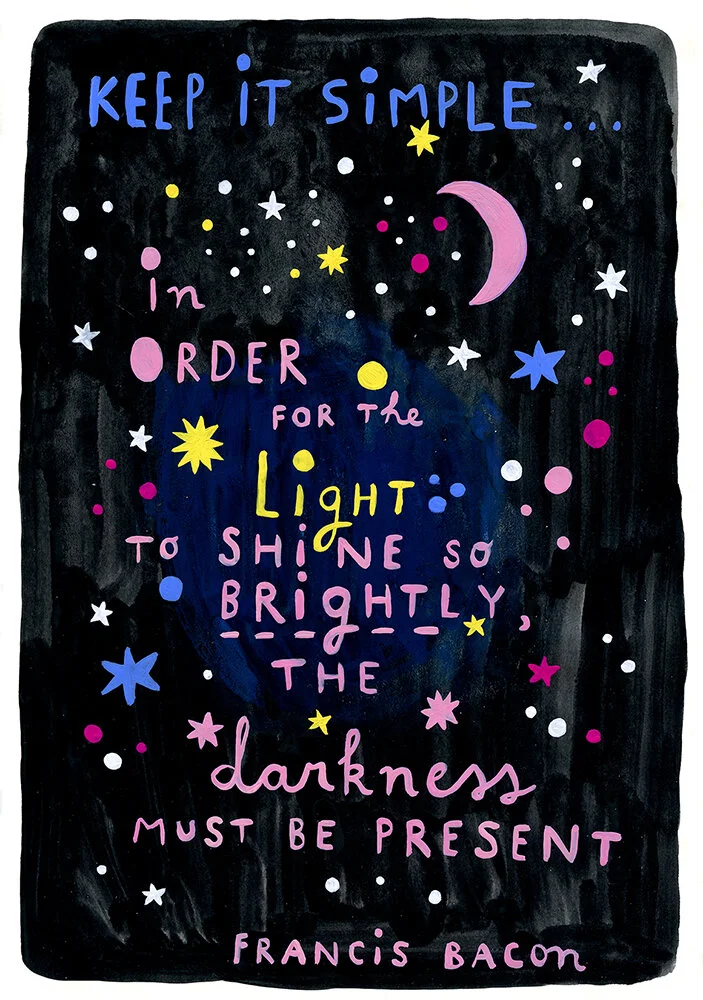 KEEP iT SiMPLE...
in
ORDER
FOR The
LiGHT
TO SHiNE SO
BRigHTLY,
THE
darkness
MUST BE PRESENT
FRANCiS BACOn